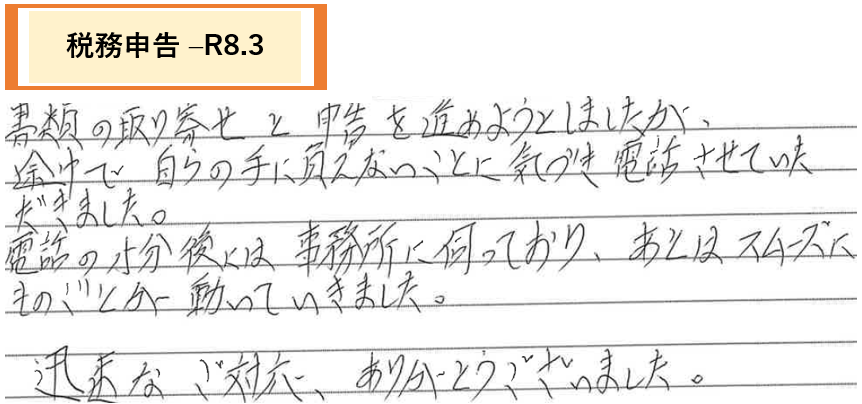 税務申告 –R8.3
書類の取り寄せと申告を進めようとしましたが、
途中で自らの手に負えないことに気づき電話させていた
だきました。
電話の十分後には事務所に伺っており、あとはスムーズに
ものごとが動いていきました。
迅速なご対応、ありがとうございました。